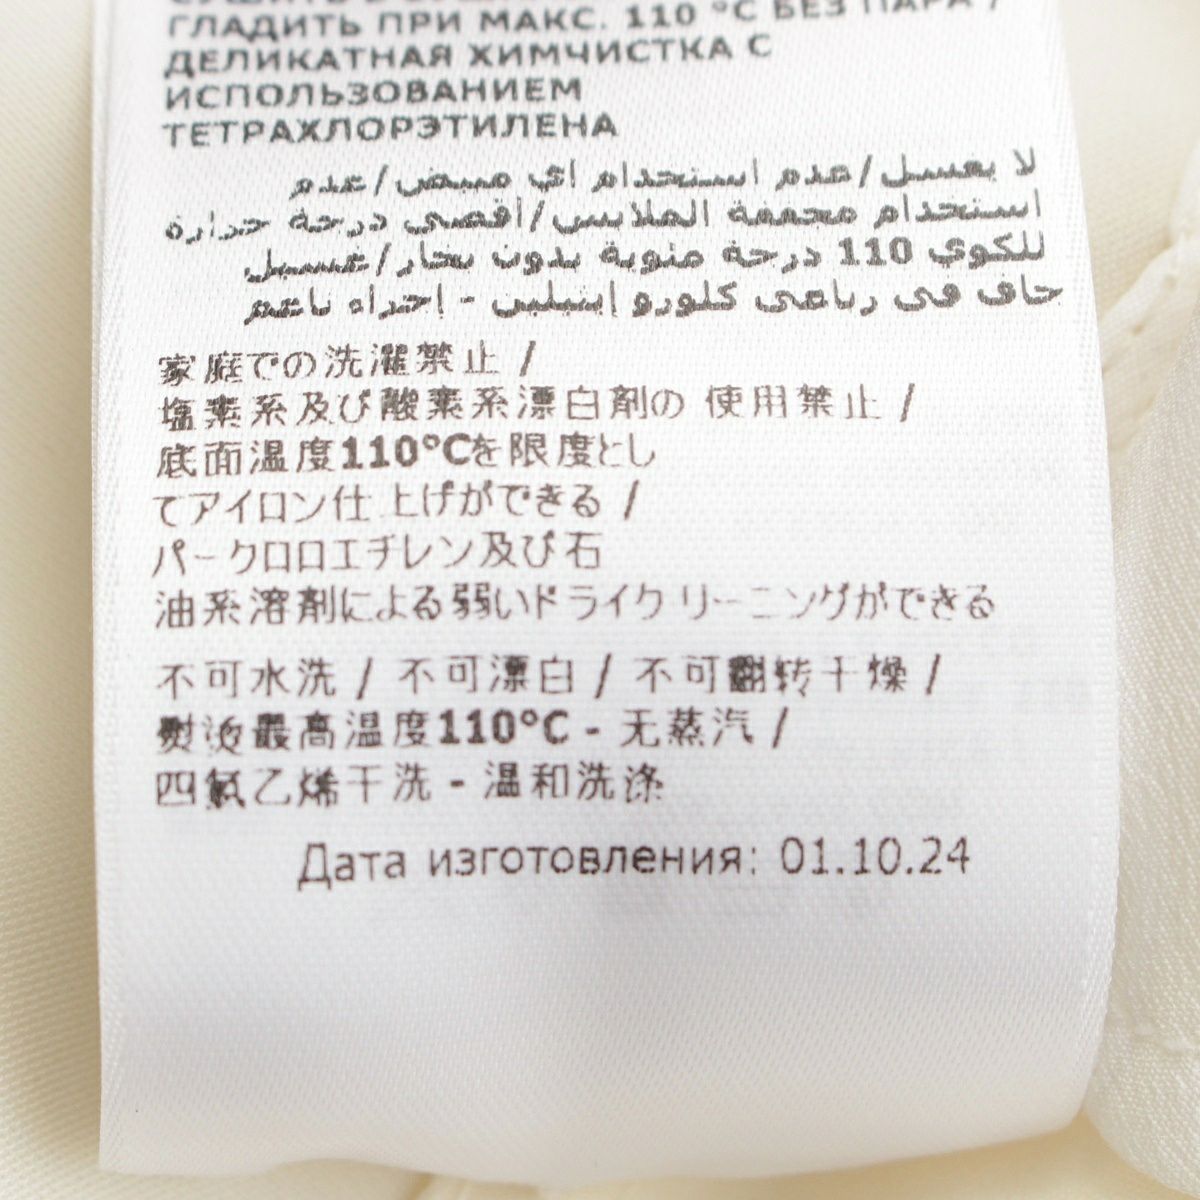 ГЛАДИТЬ ПРИ МАКС. 110 °C БЕЗ ПАРА /
ДЕЛИКАТНАЯ ХИМЧИСТКА С
ИСПОЛЬЗОВАНИЕМ
ТЕТРАХЛОРЭТИЛЕНА
لا يغسل/عدم استخدام أي مبيض/عدم
استخدام مجففة الملابس/أقصى درجة حرارة
للكوي 110 درجة مئوية بدون بخار/غسيل
جاف في رباعي كلورو إيثيلين - إجراء ناعم
家庭での洗濯禁止 /
塩素系及び酸素系漂白剤の 使用禁止 /
底面温度110°Cを限度とし
てアイロン仕上げができる /
パークロロエチレン及び石
油系溶剤による弱いドライクリーニングができる
不可水洗 / 不可漂白 / 不可翻转干燥 /
熨烫最高温度110°C - 无蒸汽 /
四氯乙烯干洗 - 温和洗涤
Дата изготовления: 01.10.24